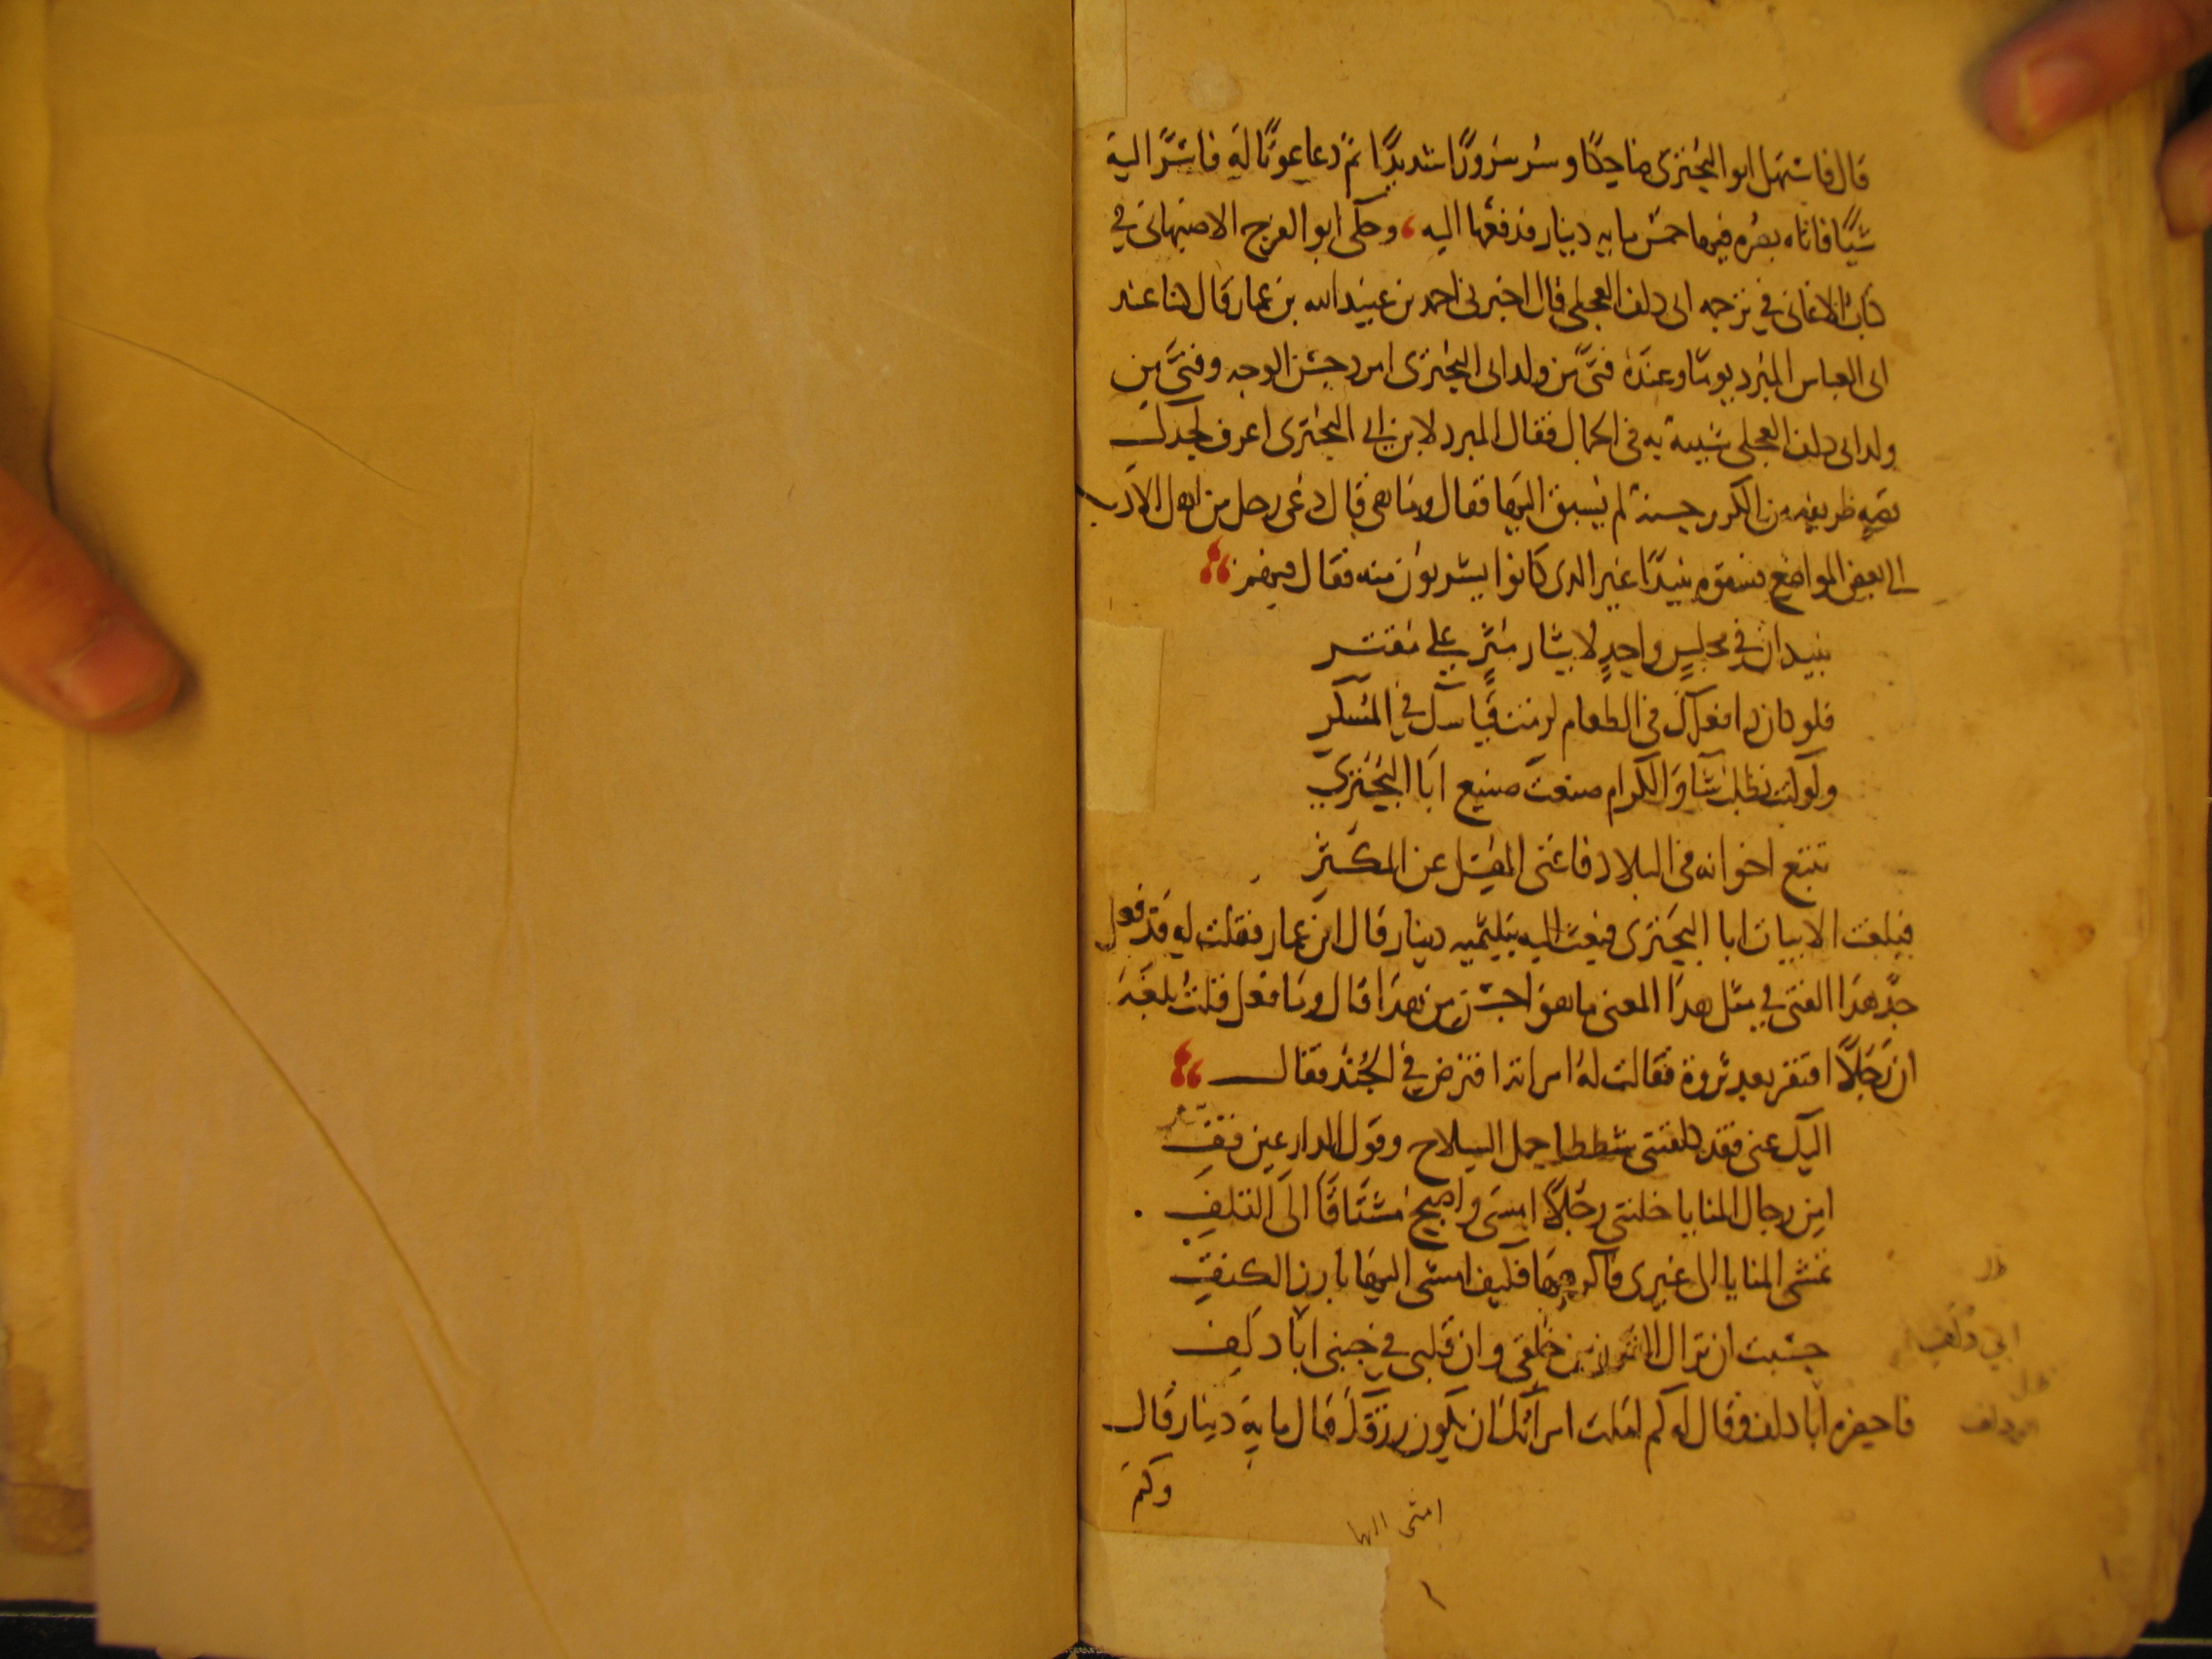 قال فاستهل ابو البحتري ضاحكا وسر سرورا شديدا ثم دعا عونا له فاسر اليه
شيا فاتاه بصره فيها خمس مايه دينار فدفعها اليه ، وحكى ابو الفرج الاصبهاني في
كتاب الاغاني في ترجمه ابي دلف العجلي قال اخبرني احمد بن عبيد الله بن عمار قال كنا عند
ابي العباس المبرد يوما وعنده فتى من ولد ابي البحتري امرد حسن الوجه وفتى من
ولد ابي دلف العجلي شبيه به في الجمال فقال المبرد لابن ابي البحتري اعرف لجدك
قصه ظريفه من الكرم حسنة لم يسبق اليها فقال وما هي قال دعي رجل من اهل الادب
الى بعض المواضع فسقوه نبيدا غير الدى كانوا يشربون منه فقال فيهم
نبيدان في مجلس واحد لايثار مثر على مقتر
فلو كان ذا فعلك في الطعام لزمت قياسك في المسكر
ولو كنت تطلب شاو الكرام صنعت صنيع ابا البحتري
تتبع اخوانه في البلاد فاغنى المقل عن المكثر
فبلغت الابيات ابا البحتري فبعث اليه بثلثميه دينار قال ابن عمار فقلت له قد فعل
جد هذا الفتى في مثل هذا المعنى ما هو احسن من هذا قال وما فعل قلت بلغه
ان رجلا افتقر بعد ثروة فقالت له امراته افترض في الجند فقال
اليك عني فقد كلفتني شططا حمل السلاح وقول الدارعين قف
امن رجال المنايا خلتني رجلا امسى واصبح مشتاقا الى التلف
تمشى المنايا الى غيري فاكرهها فكيف امشى اليها بارز الكتف
حسبت ان نزال من خلقي وان قلبي في جنبي ابا دلف
فاحضره ابا دلف وقال له كم املت امراتك ان يكون رزقك قال مايه دينار قال
وكم
ابي دلف
ابو دلف
امشى اليها